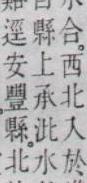 合。西北入於
縣上承沘水
逕安豐縣。北